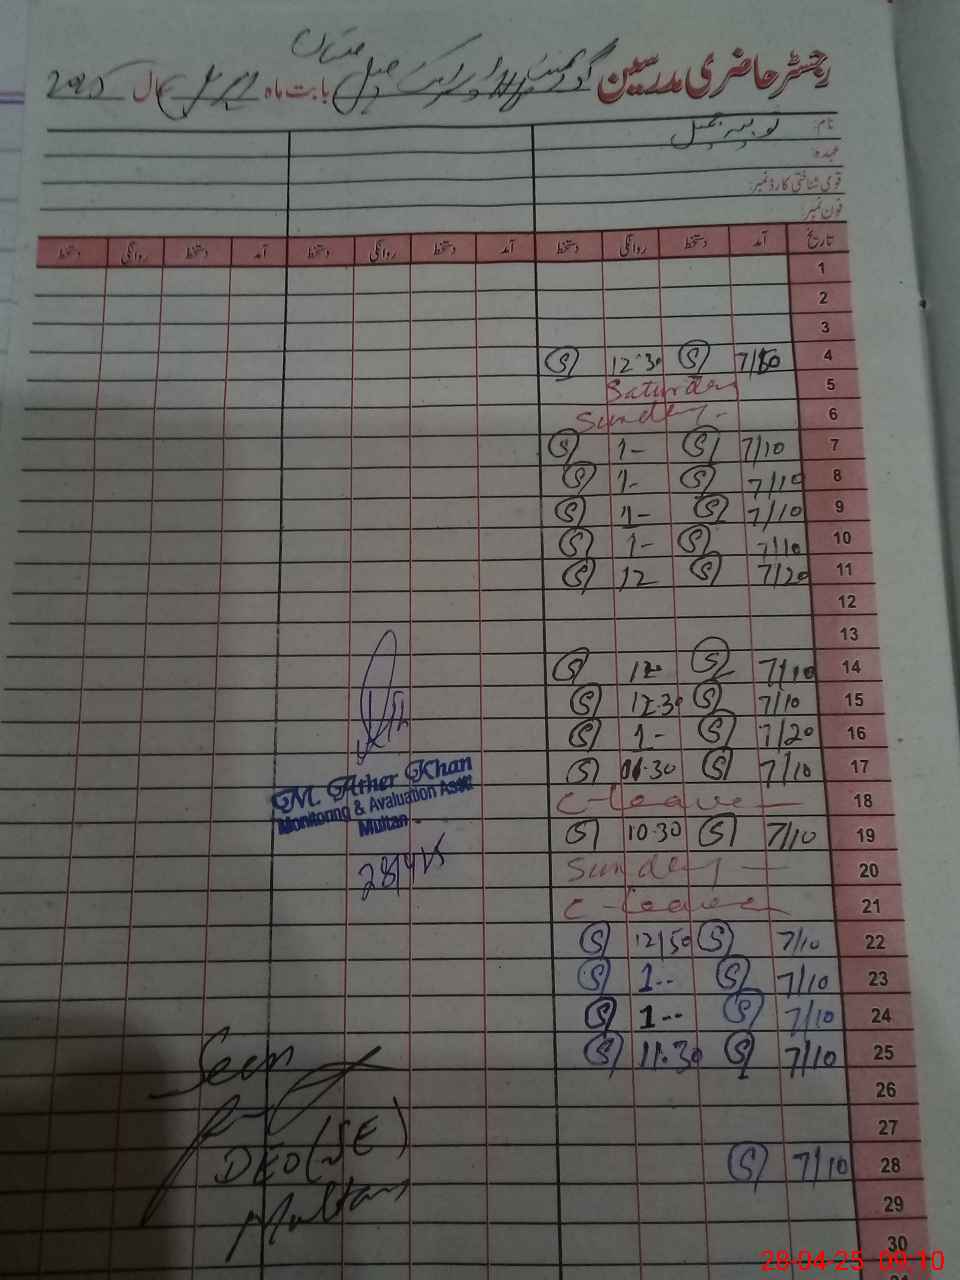 رجسٹر حاضری مدرسین گورنمنٹ بابت ماہ اپریل سال 2025
نام:
عہدہ:
قومی شناختی کارڈ نمبر:
فون نمبر:
تاریخ آمد دستخط روانگی دستخط آمد دستخط روانگی دستخط آمد دستخط روانگی دستخط
1
2
3
4 S 12-30 S
5 Saturday
6 Sunday
7 7/10 S 1- S
8 7/10 S 1- S
9 7/10 S 1- S
10 7/10 S 1- S
11 7/20 S 12 S
12
13
14 7/10 S 12 S
15 7/10 S 12.30 S
16 7/20 S 1- S
17 7/10 S 11.30 S
18 C-leave
19 7/10 S 10.30 S
20 Sunday
21 C-leave
22 7/10 S 12/50 S
23 7/10 S 1-- S
24 7/10 S 1-- S
25 7/10 S 11.30 S
26
27
28 7/10 S
29
30
M. Ather Khan
Monitoring & Avaluation Asstt
Multan
28/4/25
Seen
DEO (SE)
Multan
28-04-25 09:10